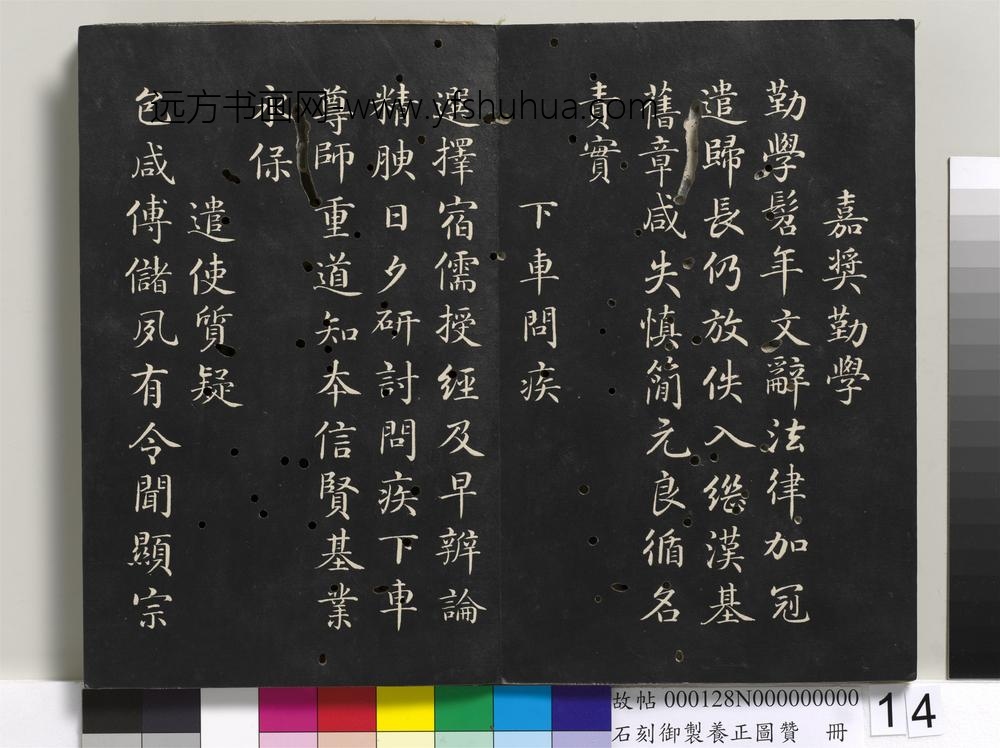 嘉獎勤學
勤學髫年文辭法律加冠
遣歸長仍放佚入繼漢基
舊章咸失慎簡元良循名
責實
下車問疾
選擇宿儒授經及早辨論
精腴日夕研討問疾下車
尊師重道知本信賢基業
永保
遣使質疑
包咸傅儲夙有令聞顯宗
远方书画网 www.yfshuhua.com
故帖 000128N000000000
石刻御製養正圖贊 冊
14